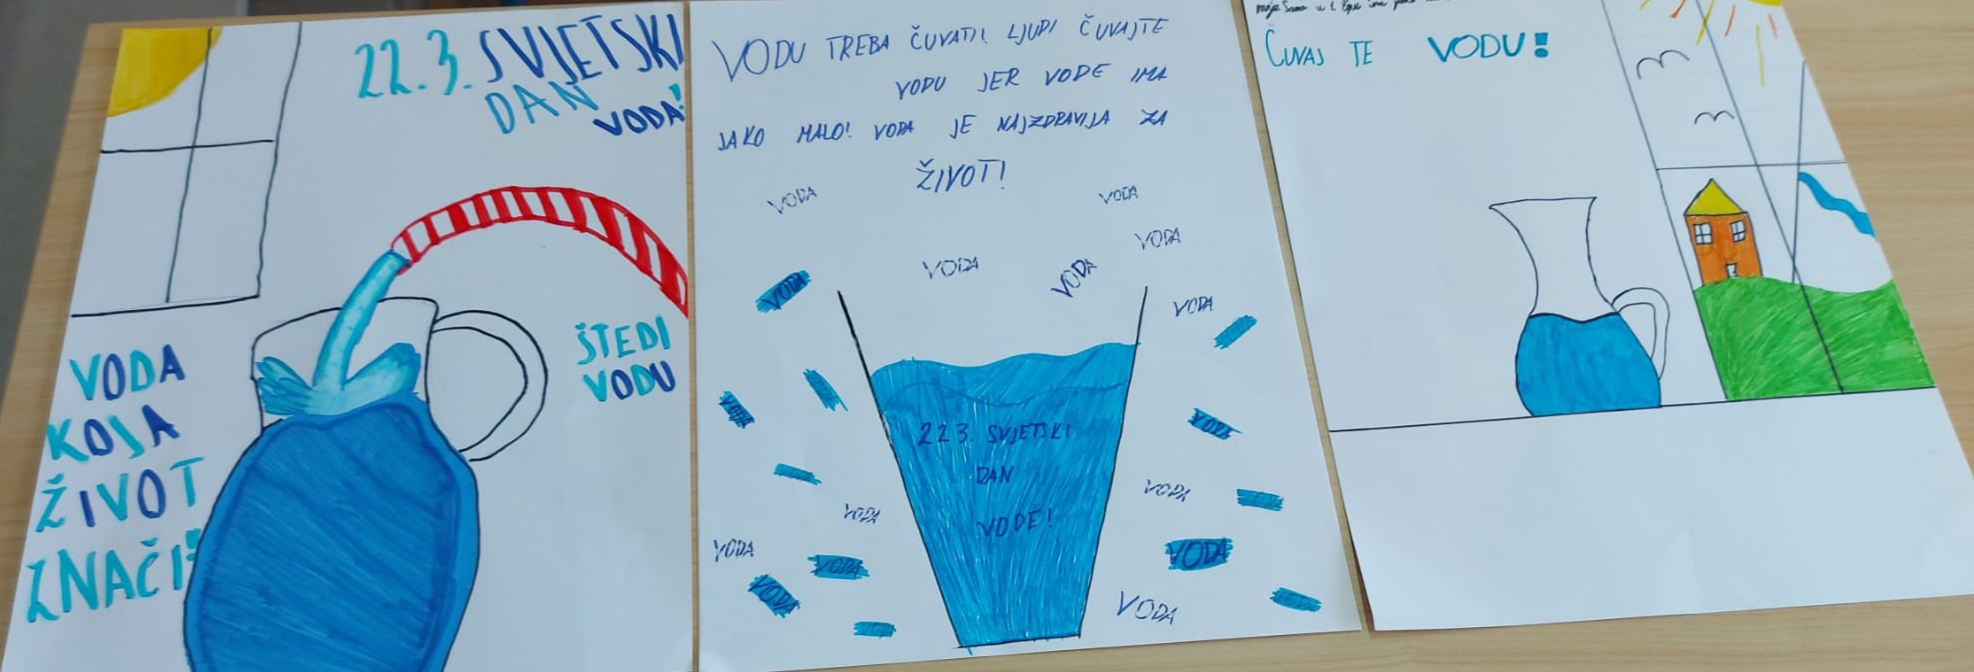 22.3. SVJETSKI
DAN
VODA!
VODA
KOJA
ŽIVOT
ZNAČI!
ŠTEDI
VODU
VODU TREBA ČUVATI! LJUDI ČUVAJTE
VODU JER VODE IMA
JAKO MALO! VODA JE NAJZDRAVIJA ZA
ŽIVOT!
VODA
VODA
VODA
VODA
VODA
VODA
VODA
VODA
VODA
223. SVJETSKI
DAN
VODE!
VODA
VODA
VODA
VODA
VODA
VODA
VODA
ČUVAJ TE VODU!